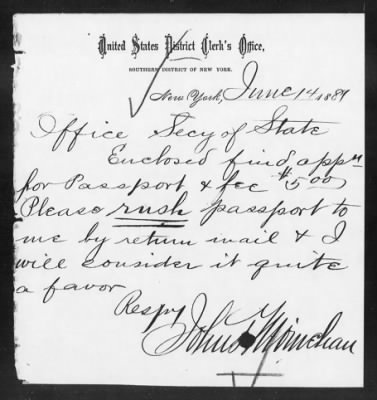 United States District Clerk's Office,
SOUTHERN DISTRICT OF NEW YORK.
New York, June 14 1889
Office Secy of State
Enclosed find appn
for Passport & fee $5.00
Please rush passport to
me by return mail & I
will consider it quite
a favor
Respy
John